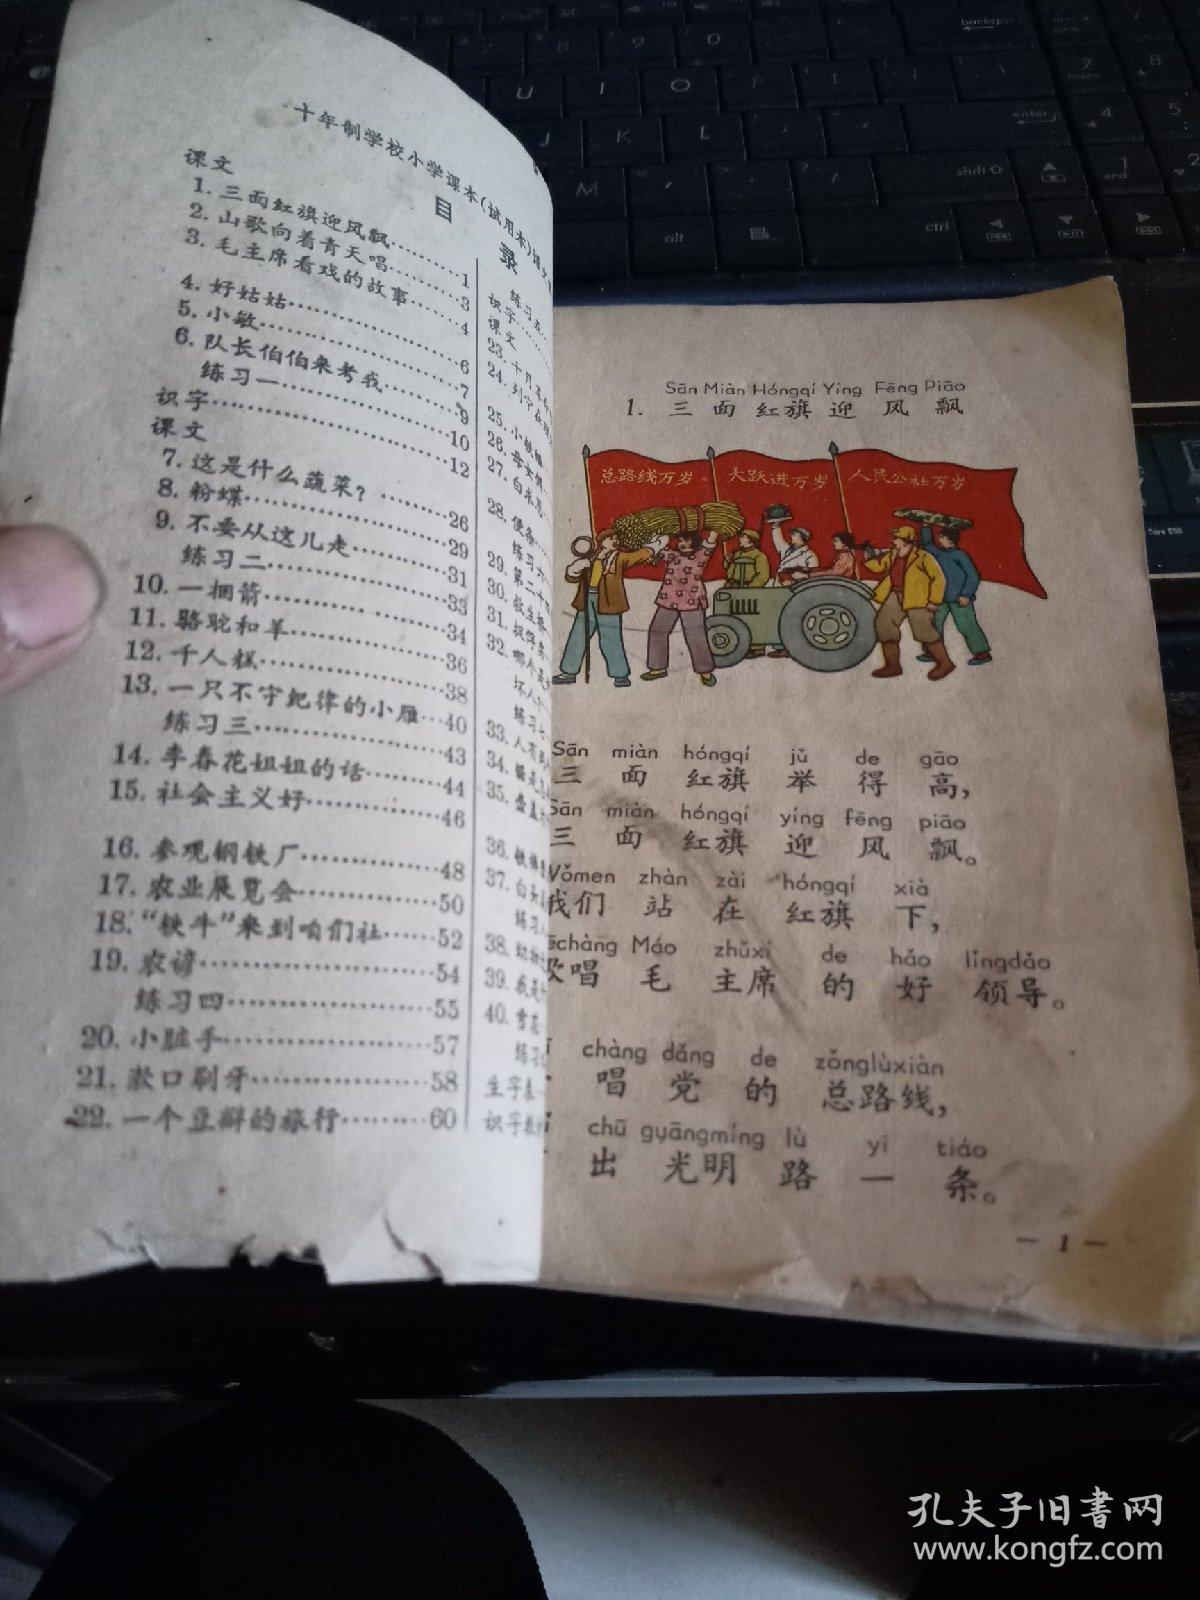 十年制学校小学课本(试用本)语文
目录
课文
1. 三面红旗迎风飘………1
2. 山歌向着青天唱………3
3. 毛主席看戏的故事……4
4. 好姑姑…………………6
5. 小敏……………………7
6. 队长伯伯来考我………9
练习一…………………10
识字……………………12
课文
7. 这是什么蔬菜？………26
8. 粉蝶……………………29
9. 不要从这儿走…………31
练习二…………………33
10. 一捆箭…………………34
11. 骆驼和羊………………36
12. 千人糕…………………38
13. 一只不守纪律的小雁…40
练习三…………………43
14. 李春花姐姐的话………44
15. 社会主义好……………46
16. 参观钢铁厂……………48
17. 农业展览会……………50
18. “铁牛”来到咱们社……52
19. 农谚……………………54
练习四…………………55
20. 小脏手…………………57
21. 漱口刷牙………………58
22. 一个豆瓣的旅行………60
练习五
识字
课文
23. 十月革
24. 列宁在
25. 小
26. 母女
27. 白求恩
28. 便条
练习六
29. 第二十
30. 救生
31.
32. 哪
坏人
练习七
33. 人有
34.
35.
36. 铁
37. 白头
练习八
38. 动物
39. 我是
40. 雪花
练习
生字表
识字表
Sān Miàn Hóngqí Yíng Fēng Piāo
1. 三面红旗迎风飘
总路线万岁
大跃进万岁
人民公社万岁
Sān miàn hóngqí jǔ de gāo
三面红旗举得高，
Sān miàn hóngqí yíng fēng piāo
三面红旗迎风飘。
Wǒmen zhàn zài hóngqí xià
我们站在红旗下，
ēchàng Máo zhǔxí de hǎo lǐngdǎo
歌唱毛主席的好领导。
chàng dǎng de zǒnglùxiàn
唱党的总路线，
chū guāngmíng lù yī tiáo
出光明路一条。
— 1 —
backspace
7
8
9
0
U
I
O
P
J
K
L
M
enter
shift
alt
ctrl
孔夫子旧书网
www.kongfz.com